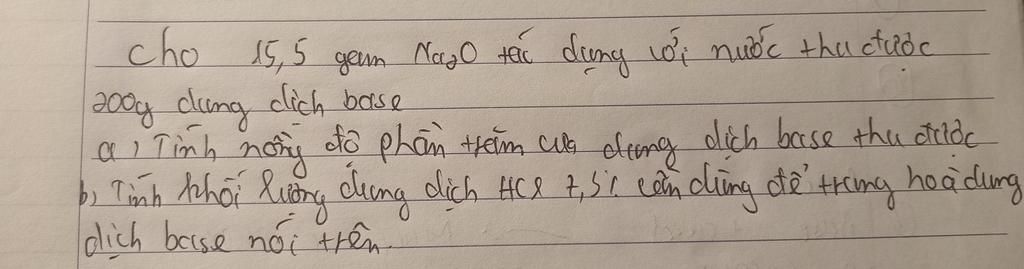 Cho 15,5 gam Na2O tác dụng với nước thu được
200g dung dịch base
a) Tính nồng độ phần trăm của dung dịch base thu được
b) Tính khối lượng dung dịch HCl 7,3% cần dùng để trung hoà dung
dịch base nói trên.